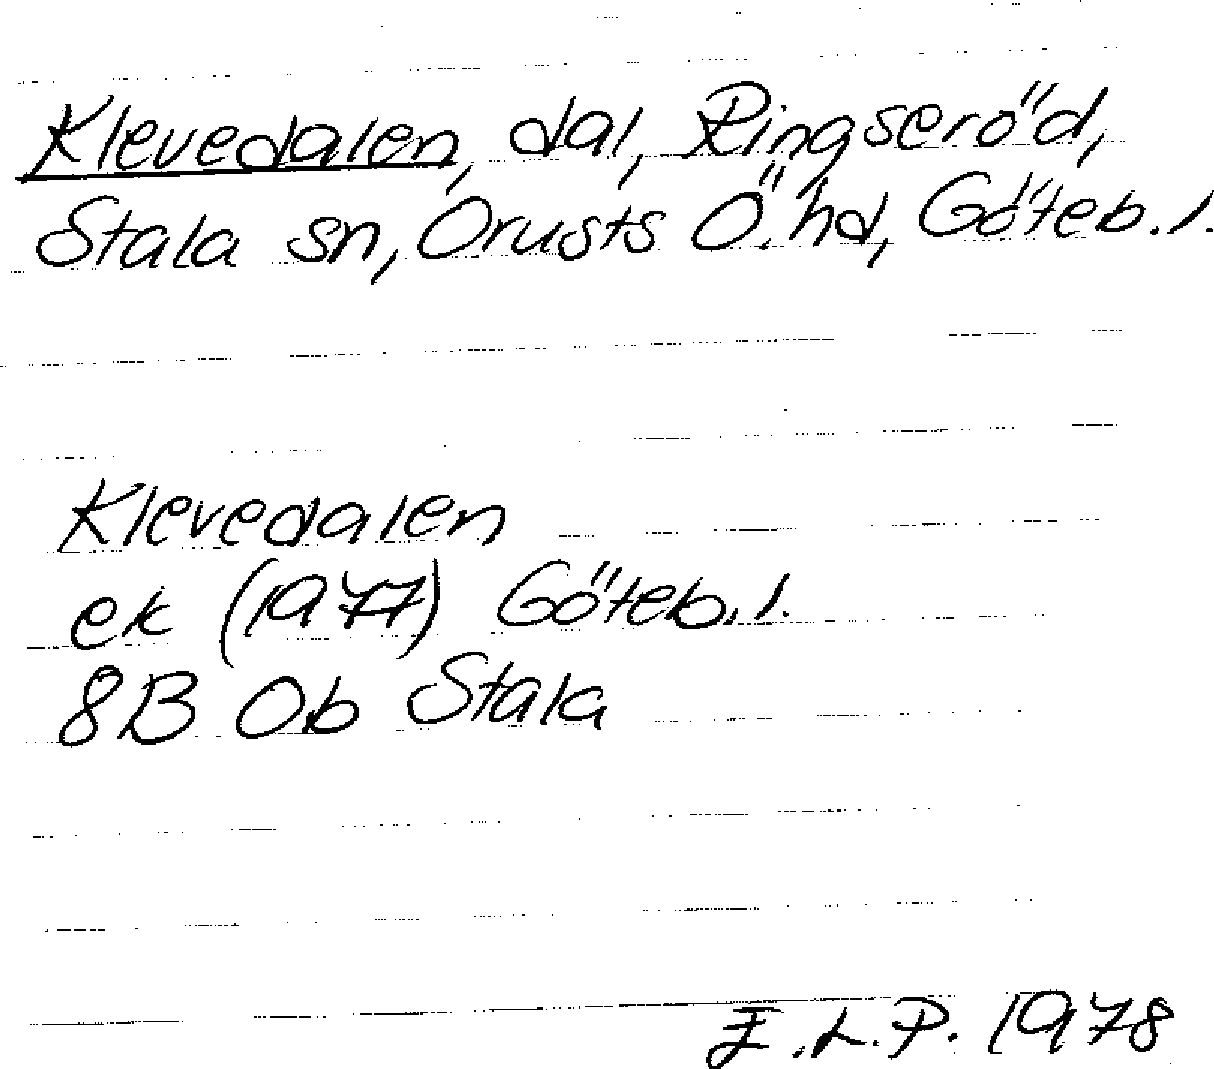 Klevedalen, dal, Ringseröd,
Stala sn, Orusts Ö. hd, Göteb. l.
Klevedalen
ek (1977) Göteb. l.
8B 0b Stala
E.L.P. 1978